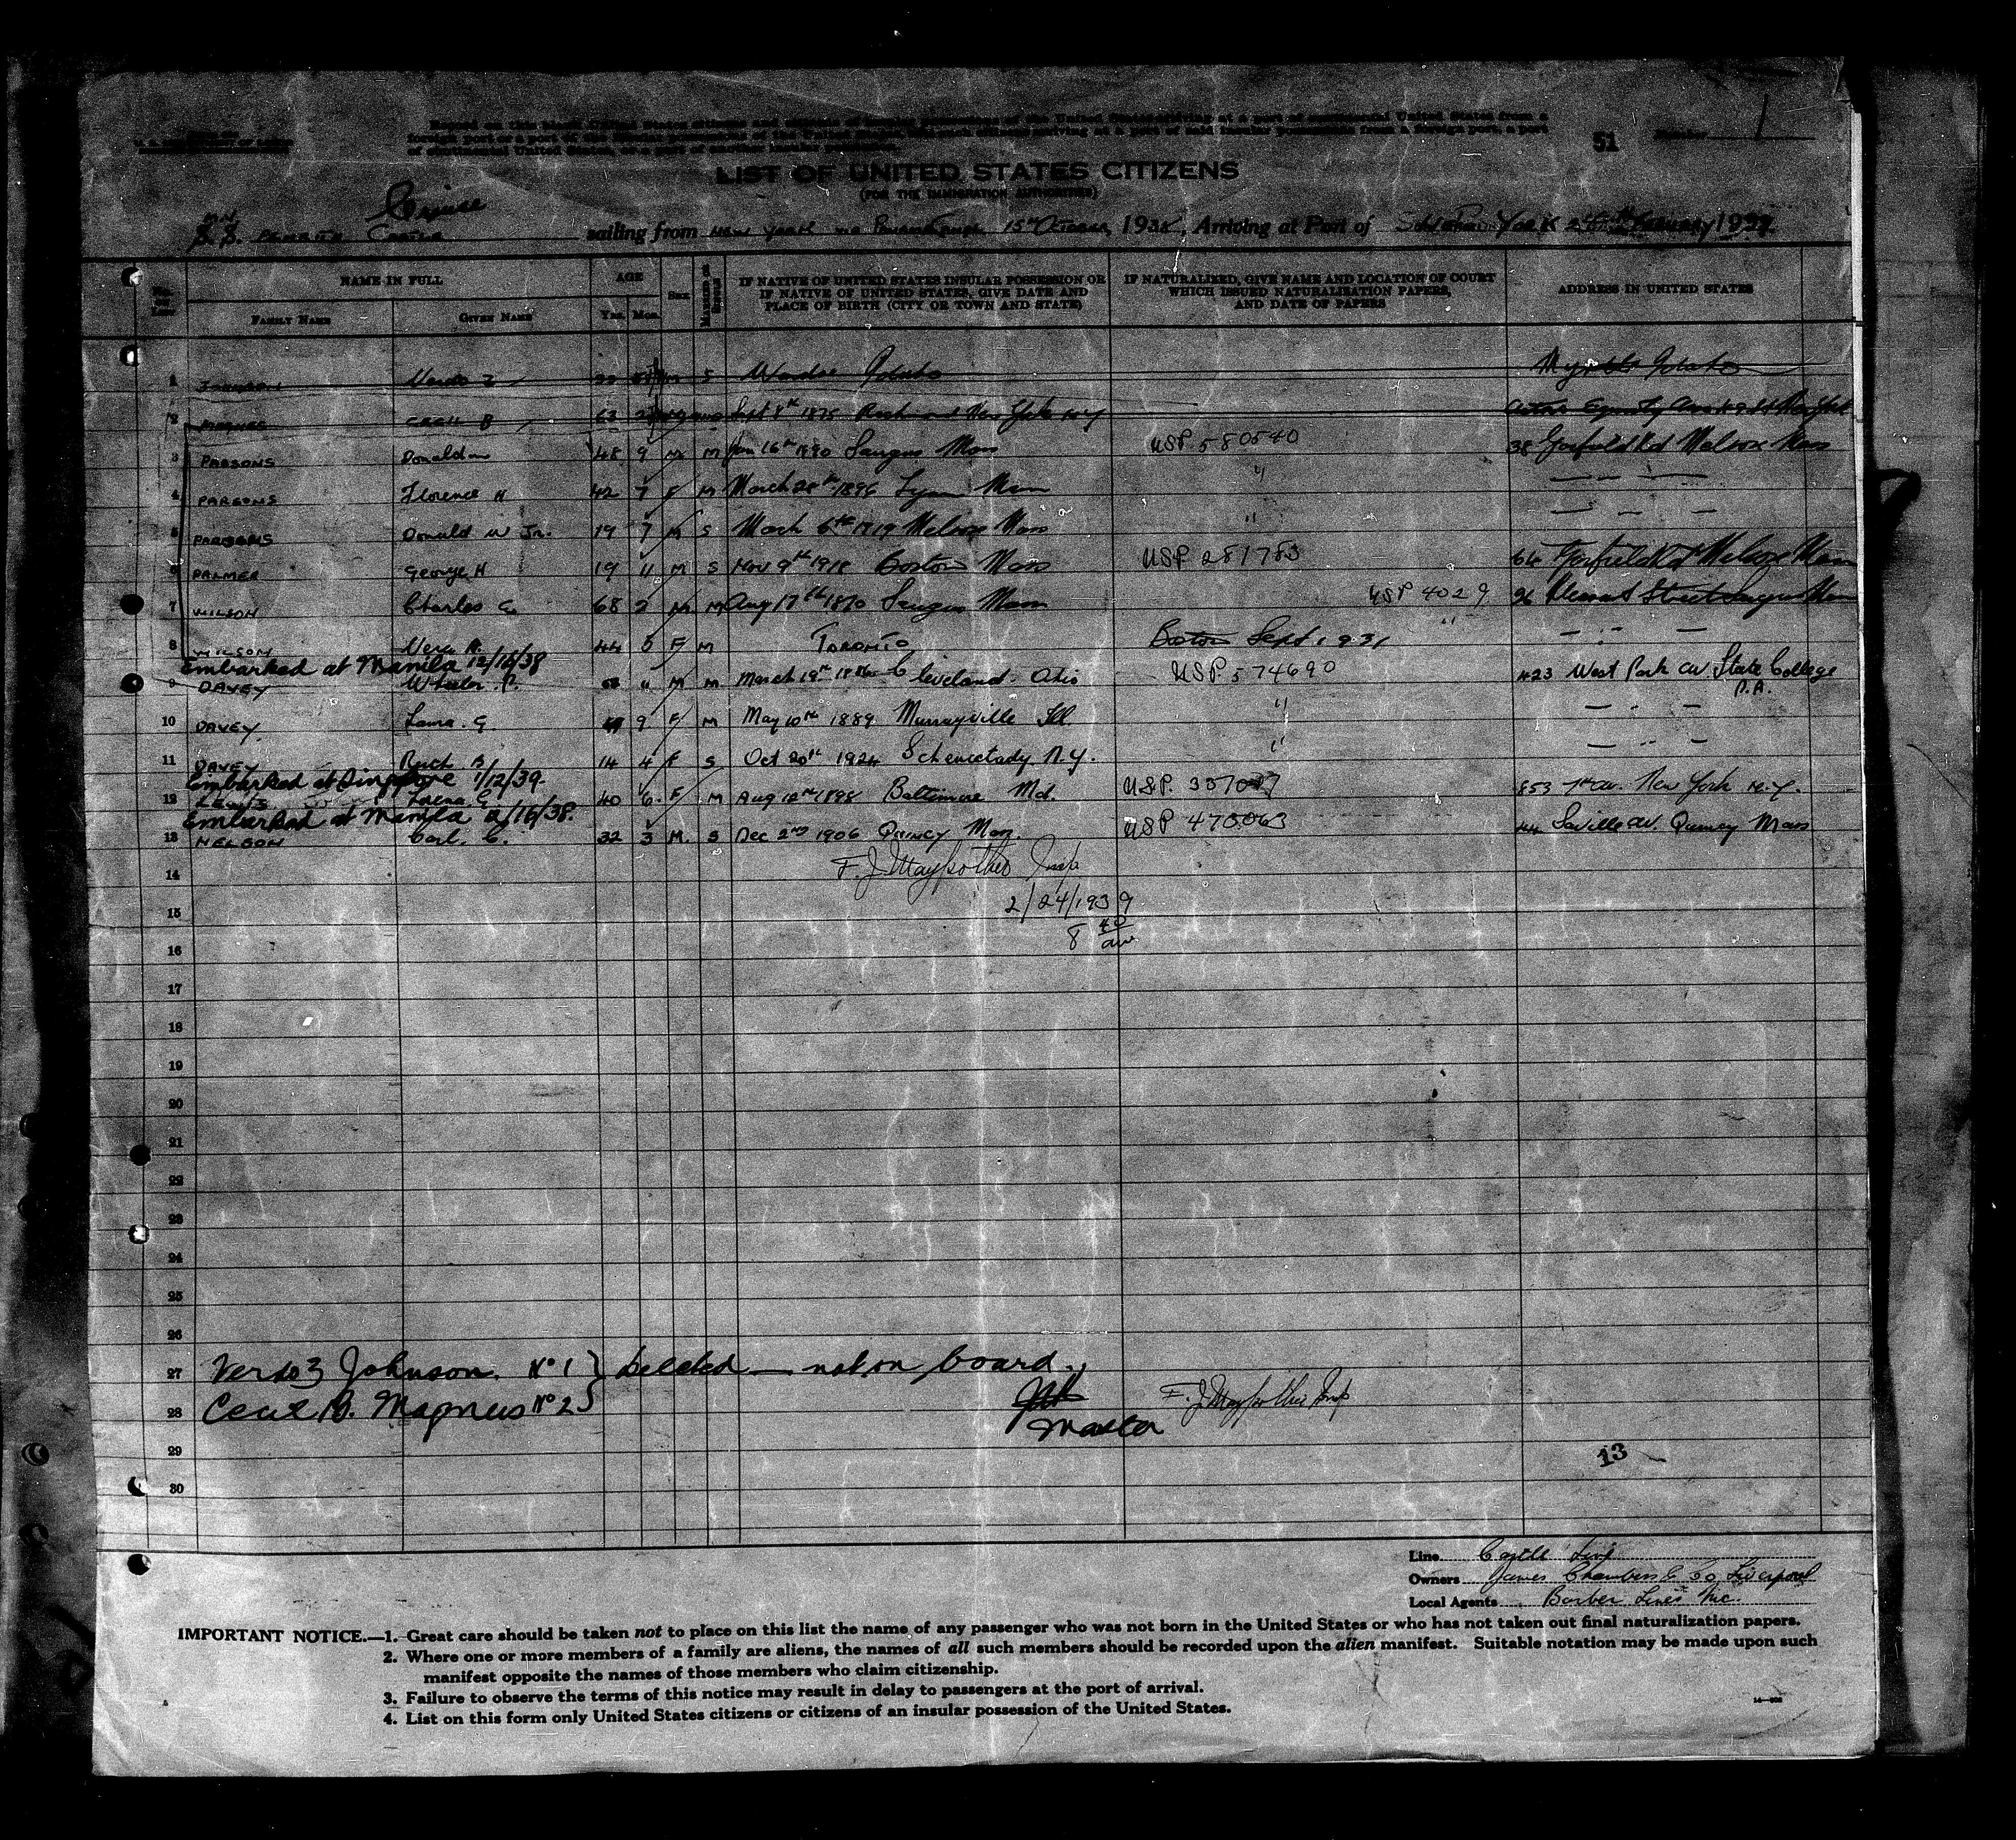 51
Number 1
LIST OF UNITED STATES CITIZENS
(FOR THE IMMIGRATION AUTHORITIES)
Cruise
M.V. PENRITH CASTLE sailing from NEW YORK via 15th OCTOBER, 1938, Arriving at Port of YORK 24th FEBRUARY 1939
No. on List
NAME IN FULL
AGE
SEX
IF NATIVE OF UNITED STATES INSULAR POSSESSION OR IF NATIVE OF UNITED STATES, GIVE DATE AND PLACE OF BIRTH (CITY OR TOWN AND STATE)
IF NATURALIZED, GIVE NAME AND LOCATION OF COURT WHICH ISSUED NATURALIZATION PAPERS, AND DATE OF PAPERS
ADDRESS IN UNITED STATES
FAMILY NAME GIVEN NAME YRS. MOS.
1 JOHNSON M S Idaho Idaho
2 MAGNUS CECIL B 63 Sept 8th 1875 Richmond New York N.Y
3 PARSONS Donald 48 9 M M Jan 16th 1890 Saugus Mass USP 580540 38 Garfield Rd Melrose Mass
4 PARSONS Florence H 42 7 F M March 28th 1896 Lynn Mass " — " —
5 PARSONS Donald W Jr. 19 7 M S March 6th 1919 Melrose Mass " — " —
6 PALMER George H 19 11 M S Nov 9th 1918 Boston Mass USP 281783 64 Garfield Rd Melrose Mass
7 WILSON Charles 68 2 M M Aug 17th 1870 Saugus Mass USP 4029 Street Saugus Mass
8 WILSON Vera 44 5 F M TORONTO Boston Sept 1931 " — " —
Embarked at Manila 12/16/38
9 DAVEY Wheeler P. 11 M M March 19th 1886 Cleveland Ohio USP. 574690 423 West Park av. State College P.A.
10 DAVEY Laura. G. 49 9 F M May 10th 1889 Murrayville Ill " — " —
11 DAVEY Ruth B 14 4 F S Oct 20th 1924 Schenectady N.Y. " — " —
Embarked at Singapore 1/12/39.
12 LEWIS Lorena. G. 40 6 F M Aug 12th 1898 Baltimore Md. USP. 853 7th av. New York N.Y.
Embarked at Manila 12/16/38.
13 NELSON Carl. C. 32 3 M. S Dec 2nd 1906 Quincy Mass. USP 470063 44 Saville av. Quincy Mass
14 F. J. Maypother Insp
15 2/24/1939
16 8 40 am
17
18
19
20
21
22
23
24
25
26
27 Verdo Z Johnson. No 1 } Deleted — not on board.
28 Cecil B. Magnus No 2 }
Master F. J. Maypother Insp
29 13
30
Line Castle Line
Owners James Chambers & Co Liverpool
Local Agents Barber Lines Inc.
IMPORTANT NOTICE.—1. Great care should be taken not to place on this list the name of any passenger who was not born in the United States or who has not taken out final naturalization papers.
2. Where one or more members of a family are aliens, the names of all such members should be recorded upon the alien manifest. Suitable notation may be made upon such
manifest opposite the names of those members who claim citizenship.
3. Failure to observe the terms of this notice may result in delay to passengers at the port of arrival.
4. List on this form only United States citizens or citizens of an insular possession of the United States.